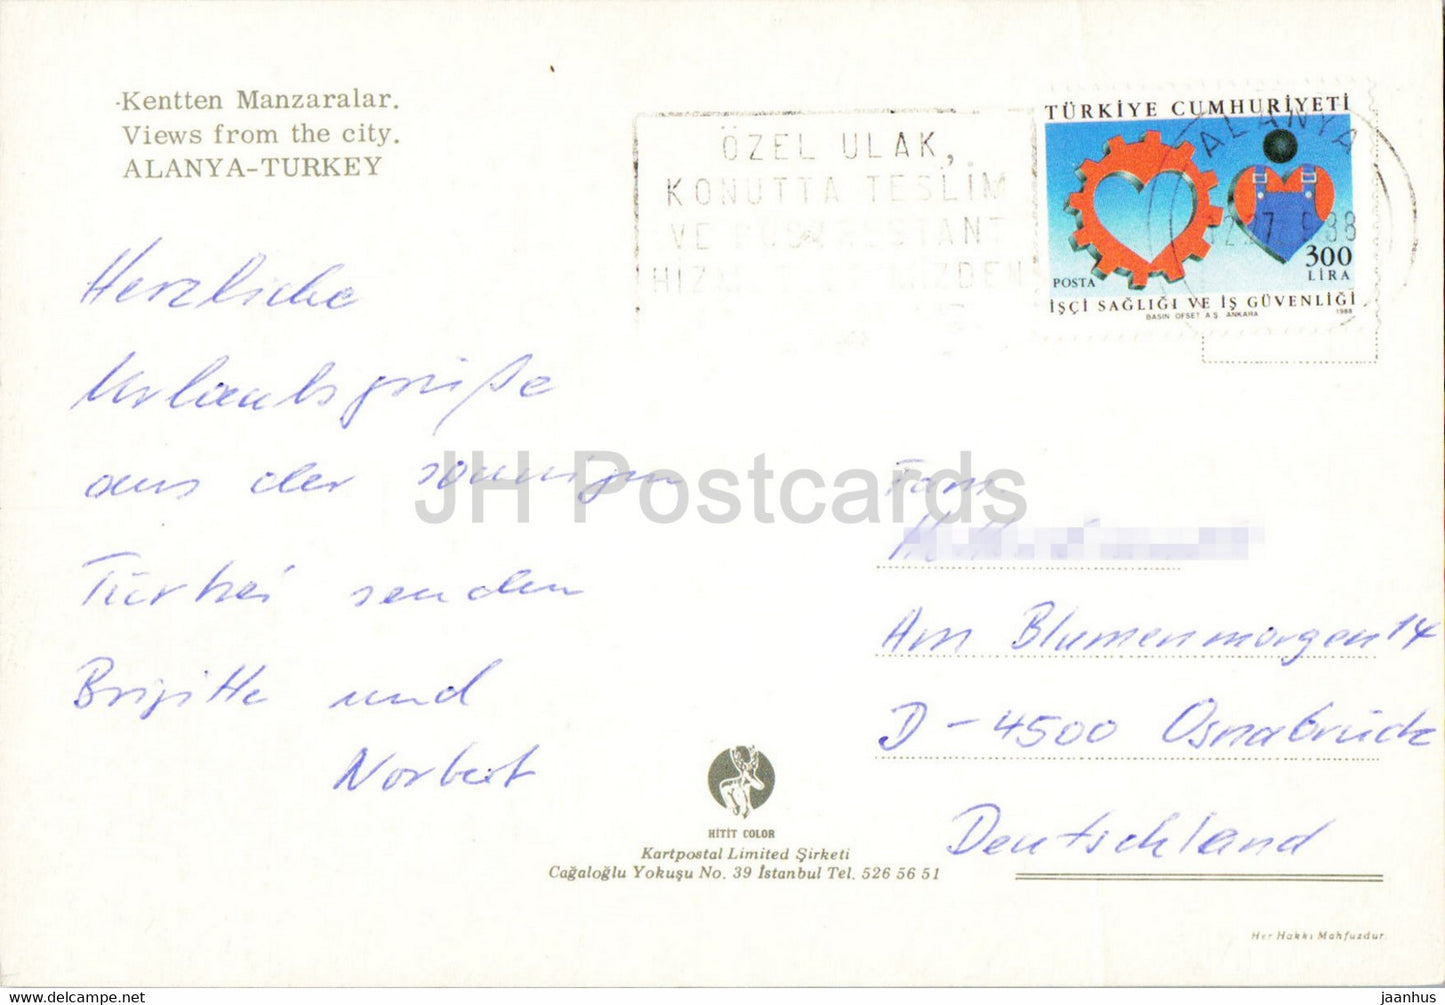 Kentten Manzaralar.
Views from the city.
ALANYA-TURKEY
ÖZEL ULAK,
KONUTTA TESLİM
VE
TÜRKİYE CUMHURİYETİ
ALANYA
300
LİRA
POSTA
İŞÇİ SAĞLIĞI VE İŞ GÜVENLİĞİ
BASIN OFSET A.Ş. ANKARA 1988
Herzliche
Urlaubsgrüße
aus der sonnigen
Türkei senden
Brigitte und
Norbert
JH Postcards
Fam.
Am Blumenmorgen 14
D-4500 Osnabrück
Deutschland
HİTİT COLOR
Kartpostal Limited Şirketi
Cağaloğlu Yokuşu No. 39 İstanbul Tel. 526 56 51
Her Hakkı Mahfuzdur.
www.delcampe.net
jaanhus